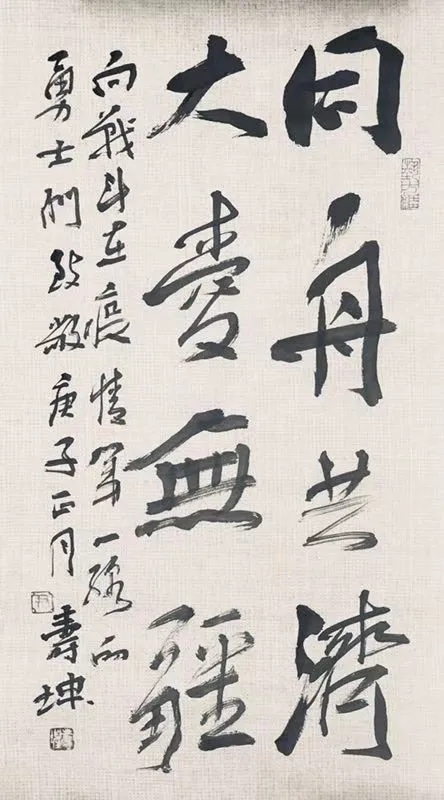 同舟共濟
大愛無疆
向戰斗在疫情第一線的
勇士們致敬庚子正月壽坤